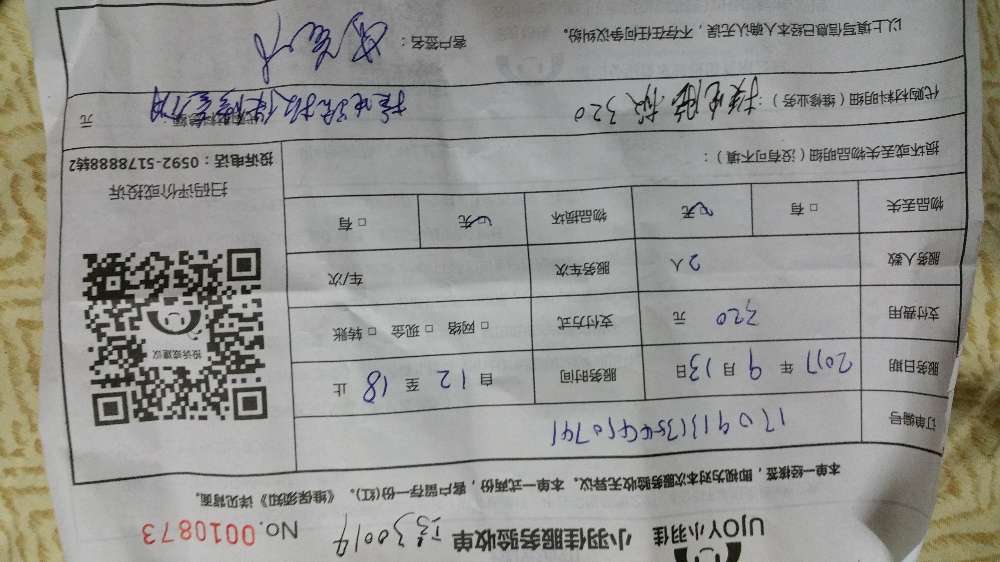 UJOY小羽佳 小羽佳服务验收单 No.0010873
本单一经核签，即视为对本次服务验收无异议。本单一式两份，客户留存一份(红)。《维保须知》详见背面。
订单编号
服务日期 2017 年 9 月 13 日 服务时间 自 12 至 18 止
支付费用 320 元 支付方式 □ 网络 □ 现金 □ 转账
服务人数 2人 服务车次 车/次
物品丢失 □ 有 □ 无 物品损坏 □ 无 □ 有
投诉或建议
扫码评价或投诉
投诉电话：0592-5178888转2
损坏或丢失物品明细（没有可不填）：
代购材料明细（维修业务）：换电脑板320 元
以上填写信息已经本人确认无误，不存在任何争议纠纷。 客户签名：